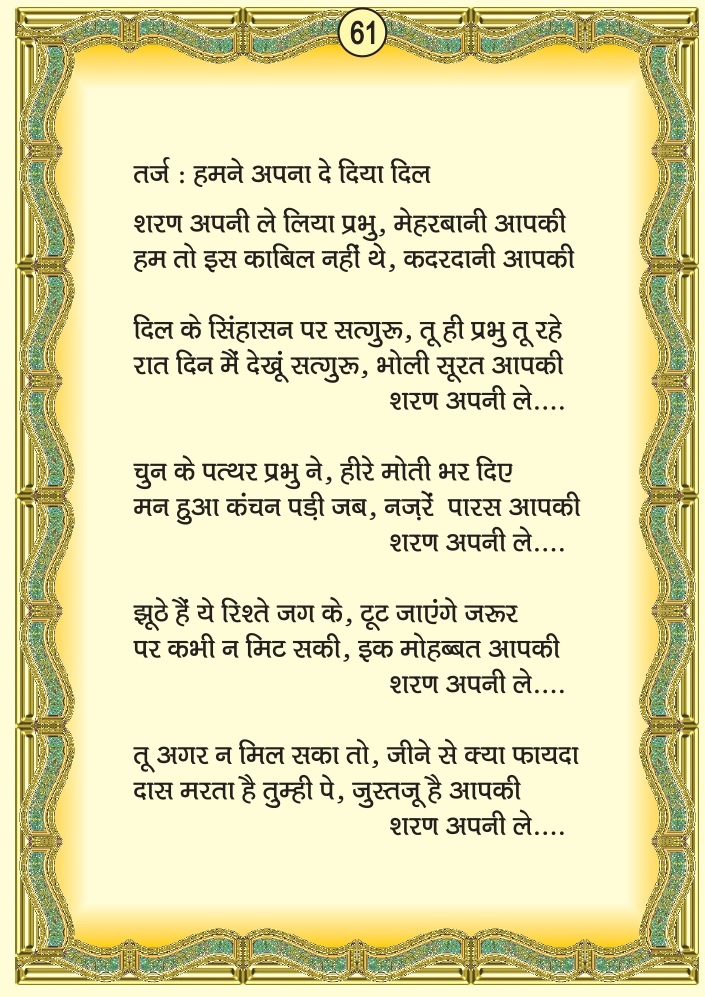 61
तर्ज : हमने अपना दे दिया दिल
शरण अपनी ले लिया प्रभु, मेहरबानी आपकी
हम तो इस काबिल नहीं थे, कदरदानी आपकी
दिल के सिंहासन पर सत्गुरू, तू ही प्रभु तू रहे
रात दिन मैं देखूं सत्गुरू, भोली सूरत आपकी
शरण अपनी ले....
चुन के पत्थर प्रभु ने, हीरे मोती भर दिए
मन हुआ कंचन पड़ी जब, नज़रें पारस आपकी
शरण अपनी ले....
झूठे हैं ये रिश्ते जग के, टूट जाएंगे जरूर
पर कभी न मिट सकी, इक मोहब्बत आपकी
शरण अपनी ले....
तू अगर न मिल सका तो, जीने से क्या फायदा
दास मरता है तुम्ही पे, जुस्तजू है आपकी
शरण अपनी ले....